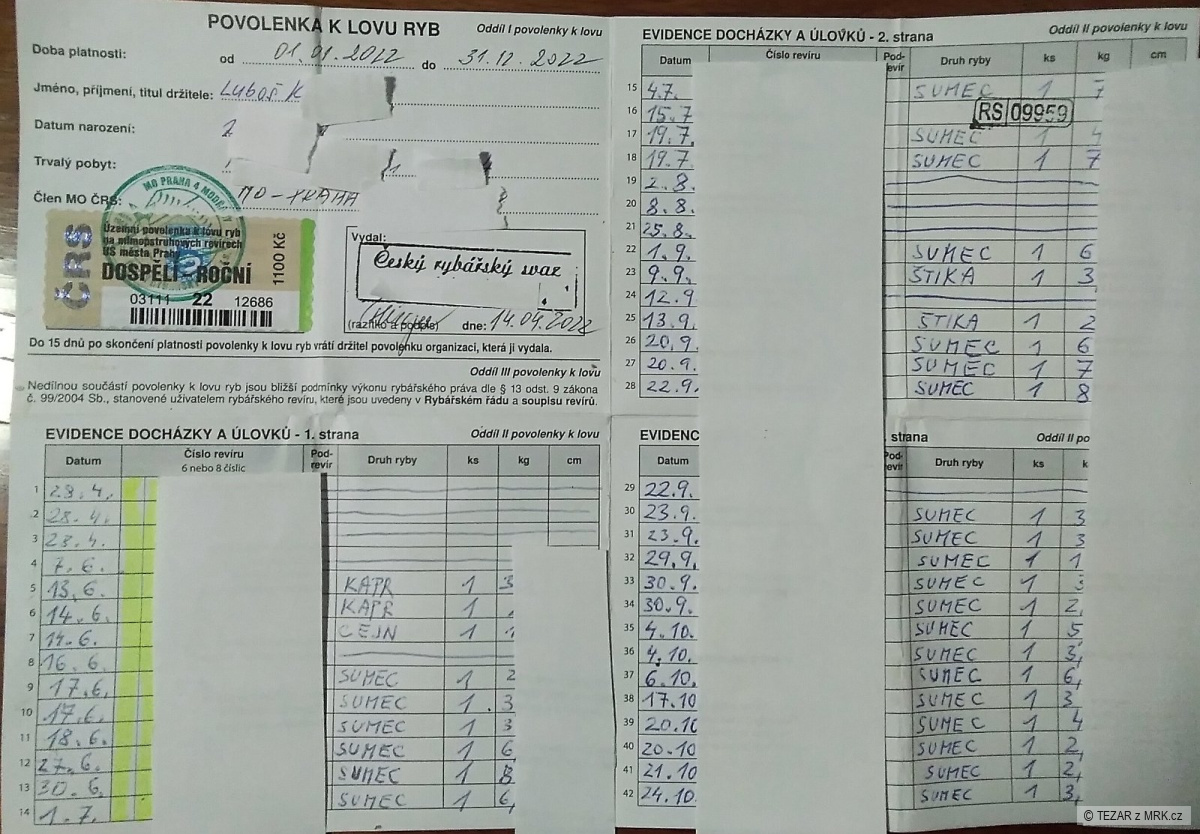 POVOLENKA K LOVU RYB
Oddíl I povolenky k lovu
Doba platnosti: od 01.01.2022 do 31.12.2022
Jméno, příjmení, titul držitele: Luboš K
Datum narození:
Trvalý pobyt:
Člen MO ČRS: MO-PRAHA
MO PRAHA 4
ČRS
Územní povolenka k lovu ryb
na mimopstruhových revírech
ÚS města Prahy
DOSPĚLÍ - ROČNÍ
1100 Kč
03111 22 12686
Vydal:
Český rybářský svaz
(razítko a podpis) dne: 14.04.2022
Do 15 dnů po skončení platnosti povolenky k lovu ryb vrátí držitel povolenku organizaci, která ji vydala.
Oddíl III povolenky k lovu
Nedílnou součástí povolenky k lovu ryb jsou bližší podmínky výkonu rybářského práva dle § 13 odst. 9 zákona
č. 99/2004 Sb., stanovené uživatelem rybářského revíru, které jsou uvedeny v Rybářském řádu a soupisu revírů.
EVIDENCE DOCHÁZKY A ÚLOVKŮ - 1. strana
Oddíl II povolenky k lovu
Datum Číslo revíru 6 nebo 8 číslic Pod-revír Druh ryby ks kg cm
1 28.4.
2 28.4.
3 28.4.
4 7.6.
5 13.6. KAPR 1 3
6 14.6. KAPR 1
7 14.6. CEJN 1
8 16.6.
9 17.6. SUMEC 1 2
10 17.6. SUMEC 1 3
11 18.6. SUMEC 1 3
12 27.6. SUMEC 1 6
13 30.6. SUMEC 1 8
14 1.7. SUMEC 1 6,
EVIDENCE DOCHÁZKY A ÚLOVKŮ - 2. strana
Oddíl II povolenky k lovu
Datum Číslo revíru Pod-revír Druh ryby ks kg cm
15 4.7. SUMEC 1 7
RS 09959
16 15.7
17 19.7. SUMEC 1 4
18 19.7. SUMEC 1 7
19 2.8.
20 8.8.
21 25.8.
22 1.9. SUMEC 1 6
23 9.9. ŠTIKA 1 3
24 12.9
25 13.9. ŠTIKA 1 2
26 20.9. SUMEC 1 6
27 20.9. SUMEC 1 7
28 22.9. SUMEC 1 8
EVIDENC
. strana
Oddíl II po
Datum Pod-revír Druh ryby ks k
29 22.9.
30 23.9. SUMEC 1 3
31 23.9. SUMEC 1 3
32 29.9. SUMEC 1 1
33 30.9. SUMEC 1 3
34 30.9. SUMEC 1 2,
35 4.10. SUMEC 1 5
36 4.10. SUMEC 1 3,
37 6.10. SUMEC 1 6,
38 17.10 SUMEC 1 3
39 20.10 SUMEC 1 4
40 20.10 SUMEC 1 2,
41 21.10 SUMEC 1 2,
42 24.10 SUMEC 1 3,
© TEZAR z MRK.cz